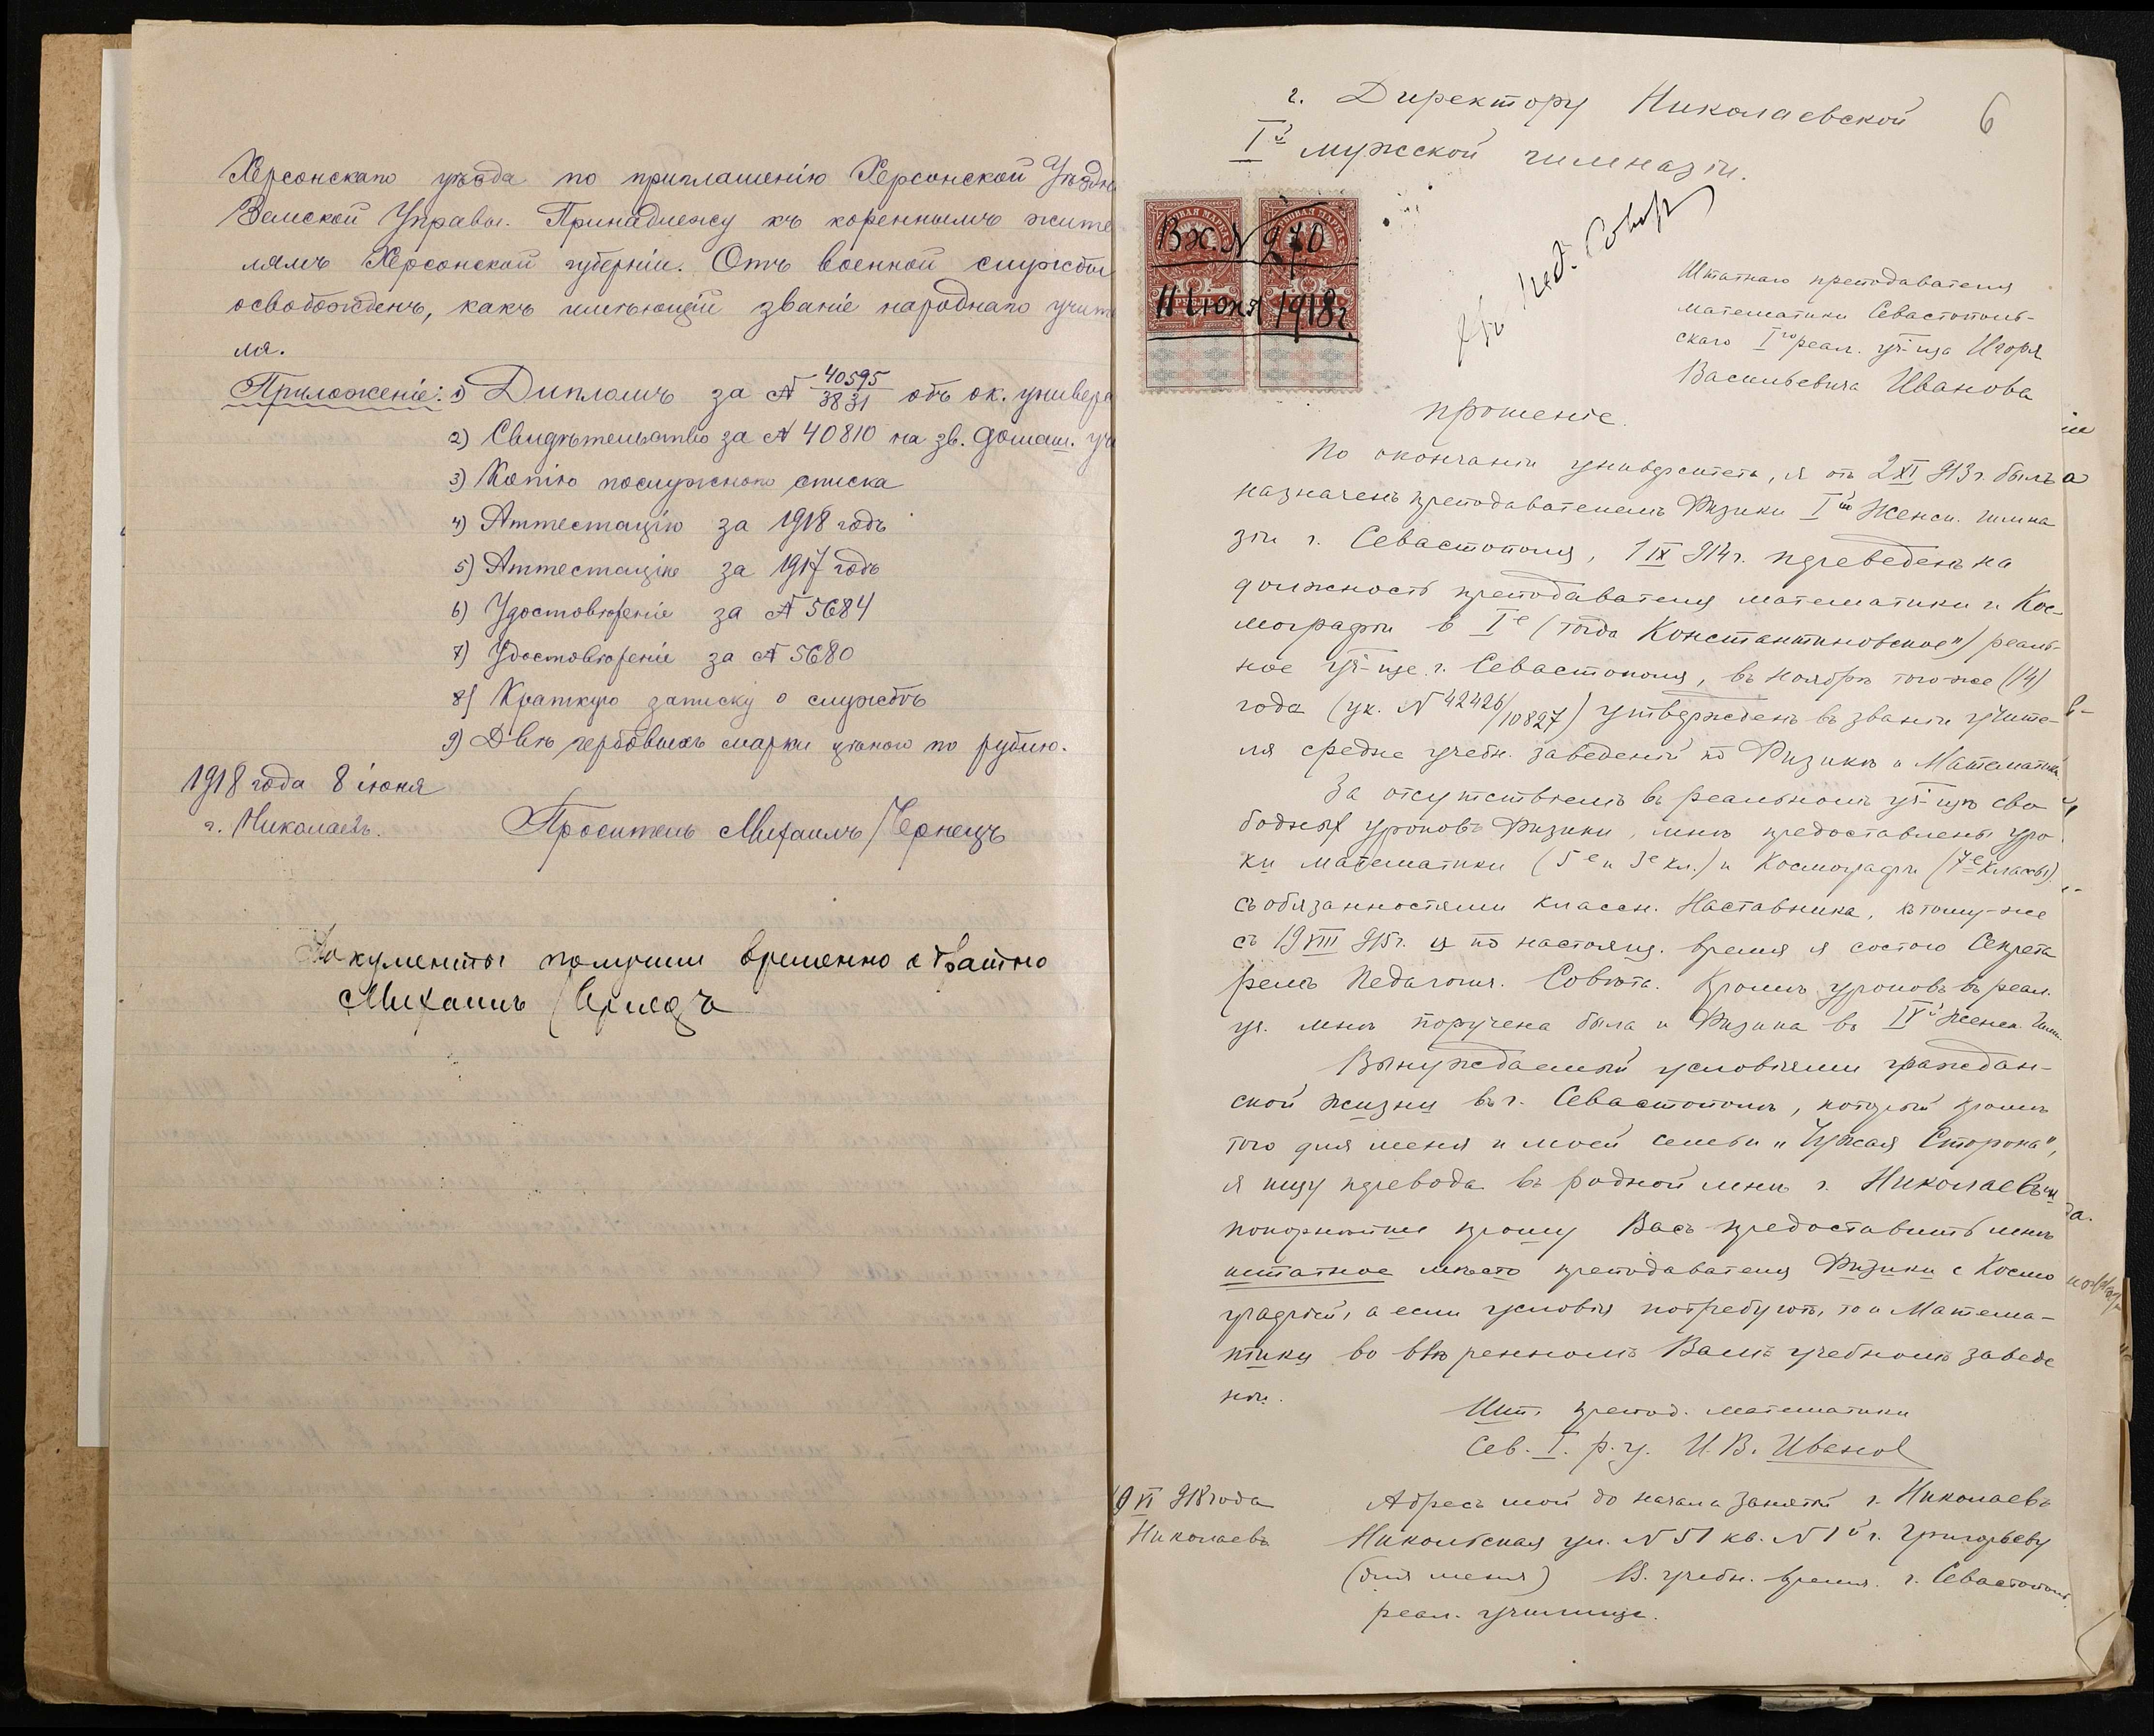 Херсонскаго уѣзда по приглашенію Херсонской Уѣздн
Земской Управы. Принадлежу къ кореннымъ жите
лямъ Херсонской губерніи. Отъ военной службы
освобожденъ, какъ имѣющій званіе народнаго учит
ля.
Приложеніе: 1) Дипломъ за № 40595/3831 объ ок. универс
2) Свидѣтельство за № 40810 на зв. домаш. уч
3) Копію послужного списка
4) Аттестацію за 1918 годъ
5) Аттестацію за 1917 годъ
6) Удостовѣреніе за № 5684
7) Удостовѣреніе за № 5680
8) Краткую записку о службѣ
9) Двѣ гербовыхъ марки цѣною по рублю.
1918 года 8 іюня
г. Николаевъ.
Проситель Михаилъ Чернецъ
Документы получилъ временно обратно
Михаилъ Чернецъ
6
г. Директору Николаевской
Iй мужской гимназіи.
Вх. № 970
11 Июня 1918 г.
Пед. Совѣт
Штатнаго преподавателя
математики Севастополь-
скаго Iго реал. уч-ща Игоря
Васильевича Иванова
прошеніе.
По окончаніи университета, я отъ 2 XI 913 г. былъ
назначенъ преподавателемъ Физики Iой Женск. гимна
зіи г. Севастополя, 1 IX 914 г. переведенъ на
должность преподавателя математики и Кос-
мографіи в Iе (тогда Константиновское") реаль-
ное уч-ще г. Севастополя, въ ноябрѣ того-же (14)
года (ук. № 42426/10827) утвержденъ въ званіи учите-
ля средне учебн. заведеній по Физикѣ и Математикѣ
За отсутствіемъ въ реальномъ уч-щѣ сво
бодных уроковъ Физики, мнѣ предоставлены уро
ки математики (5е и 3е кл.) и Космографіи (7е классы).
съ обязанностями классн. Наставника, къ тому-же
съ 19 VIII 915 г. и по настоящ. время я состою Секрета
ремъ Педагогич. Совѣта. Кромѣ уроковъ въ реал.
уч. мнѣ поручена была и Физика въ IVй Женск. Гимн.
Вынуждаемый условіями граждан-
ской жизни въ г. Севастополѣ, который кромѣ
того для меня и моей семьи „Чужая Сторона",
я ищу перевода въ родной мнѣ г. Николаевъ и
покорнѣйше прошу Васъ предоставить мнѣ
штатное мѣсто преподавателя Физики с Космо
графіей, а если условія потребуютъ, то и Матема-
тики во ввѣренномъ Вамъ учебномъ заведе
ніи.
Шт. препод. математики
Сев. I. р. у. И. В. Иванов
10 VI 918 года
Николаевъ
Адресъ мой до начала занятій г. Николаевъ
Никольская ул. № 51 кв. № 1й г. Григорьеву
(для меня) В. учебн. время. г. Севастополь
реал. училище.